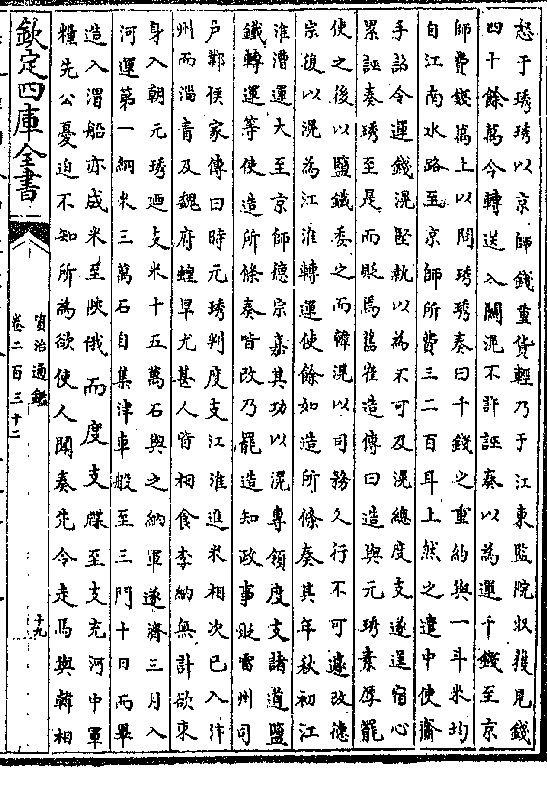 怒于琇琇以京師錢重貨輕乃于江東監院收獲見錢
四十餘萬令轉送入關滉不許誣奏以為運千錢至京
師費錢萬上以問琇琇奏曰千錢之重約與一斗米均
自江南水路至京師所費三二百耳上然之遣中使齎
手詔令運錢滉堅執以為不可及滉總度支遂逞宿心
累誣奏琇至是而貶焉舊崔造傳曰造與元琇素厚罷
使之後以鹽鐵委之而韓滉以司務久行不可遽改德
宗復以滉為江淮轉運使餘如造所條奏其年秋初江
淮漕運大至京師德宗嘉其功以滉專領度支諸道鹽
鐵轉運等使造所條奏皆改乃罷造知政事貶雷州司
户鄴侯家傳曰時元琇判度支江淮進米相次已入汴
州而淄青及魏府蝗旱尤甚人皆相食李納無計欲束
身入朝元琇廼支米十五萬石與之納軍遂濟三月入
河運第一綱米三萬石自集津車般至三門十日而畢
造入渭船亦成米至陝俄而度支牒至支充河中軍
糧先公憂迫不知所為欲使人聞奏先令走馬與韓相
欽定四庫全書
資治通鑑
卷二百三十二
十九